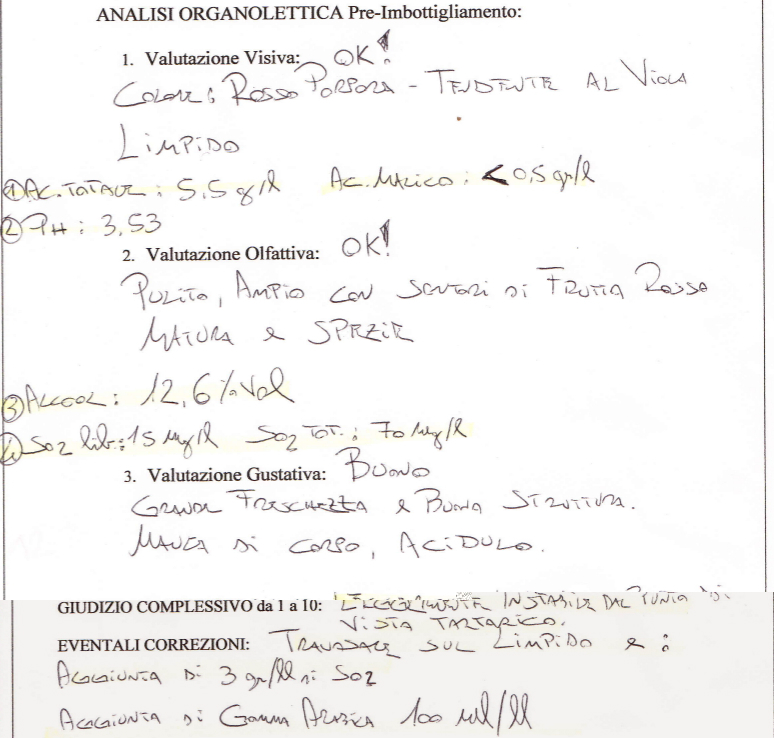 ANALISI ORGANOLETTICA Pre-Imbottigliamento:
1. Valutazione Visiva: OK!
COLORE: ROSSO PORPORA - TENDENTE AL VIOLA
LIMPIDO
① AC. TOTALE: 5,5 g/l AC. MALICO: < 0,5 gr/l
② PH: 3,53
2. Valutazione Olfattiva: OK!
PULITO, AMPIO CON SENTORI DI FRUTTA ROSSA
MATURA e SPEZIE
③ ALCOOL: 12,6 % Vol
④ SO2 lib.: 15 mg/l SO2 TOT.: 70 mg/l
3. Valutazione Gustativa: BUONO
GRANDE FRESCHEZZA e BUONA STRUTTURA.
MANCA DI CORPO, ACIDULO.
GIUDIZIO COMPLESSIVO da 1 a 10: LEGGERMENTE INSTABILE DAL PUNTO DI
VISTA TARTARICO.
EVENTALI CORREZIONI: TRAVASARE SUL LIMPIDO e :
AGGIUNTA DI 3 gr/ll DI SO2
AGGIUNTA DI GOMMA ARABICA 100 ml/ll